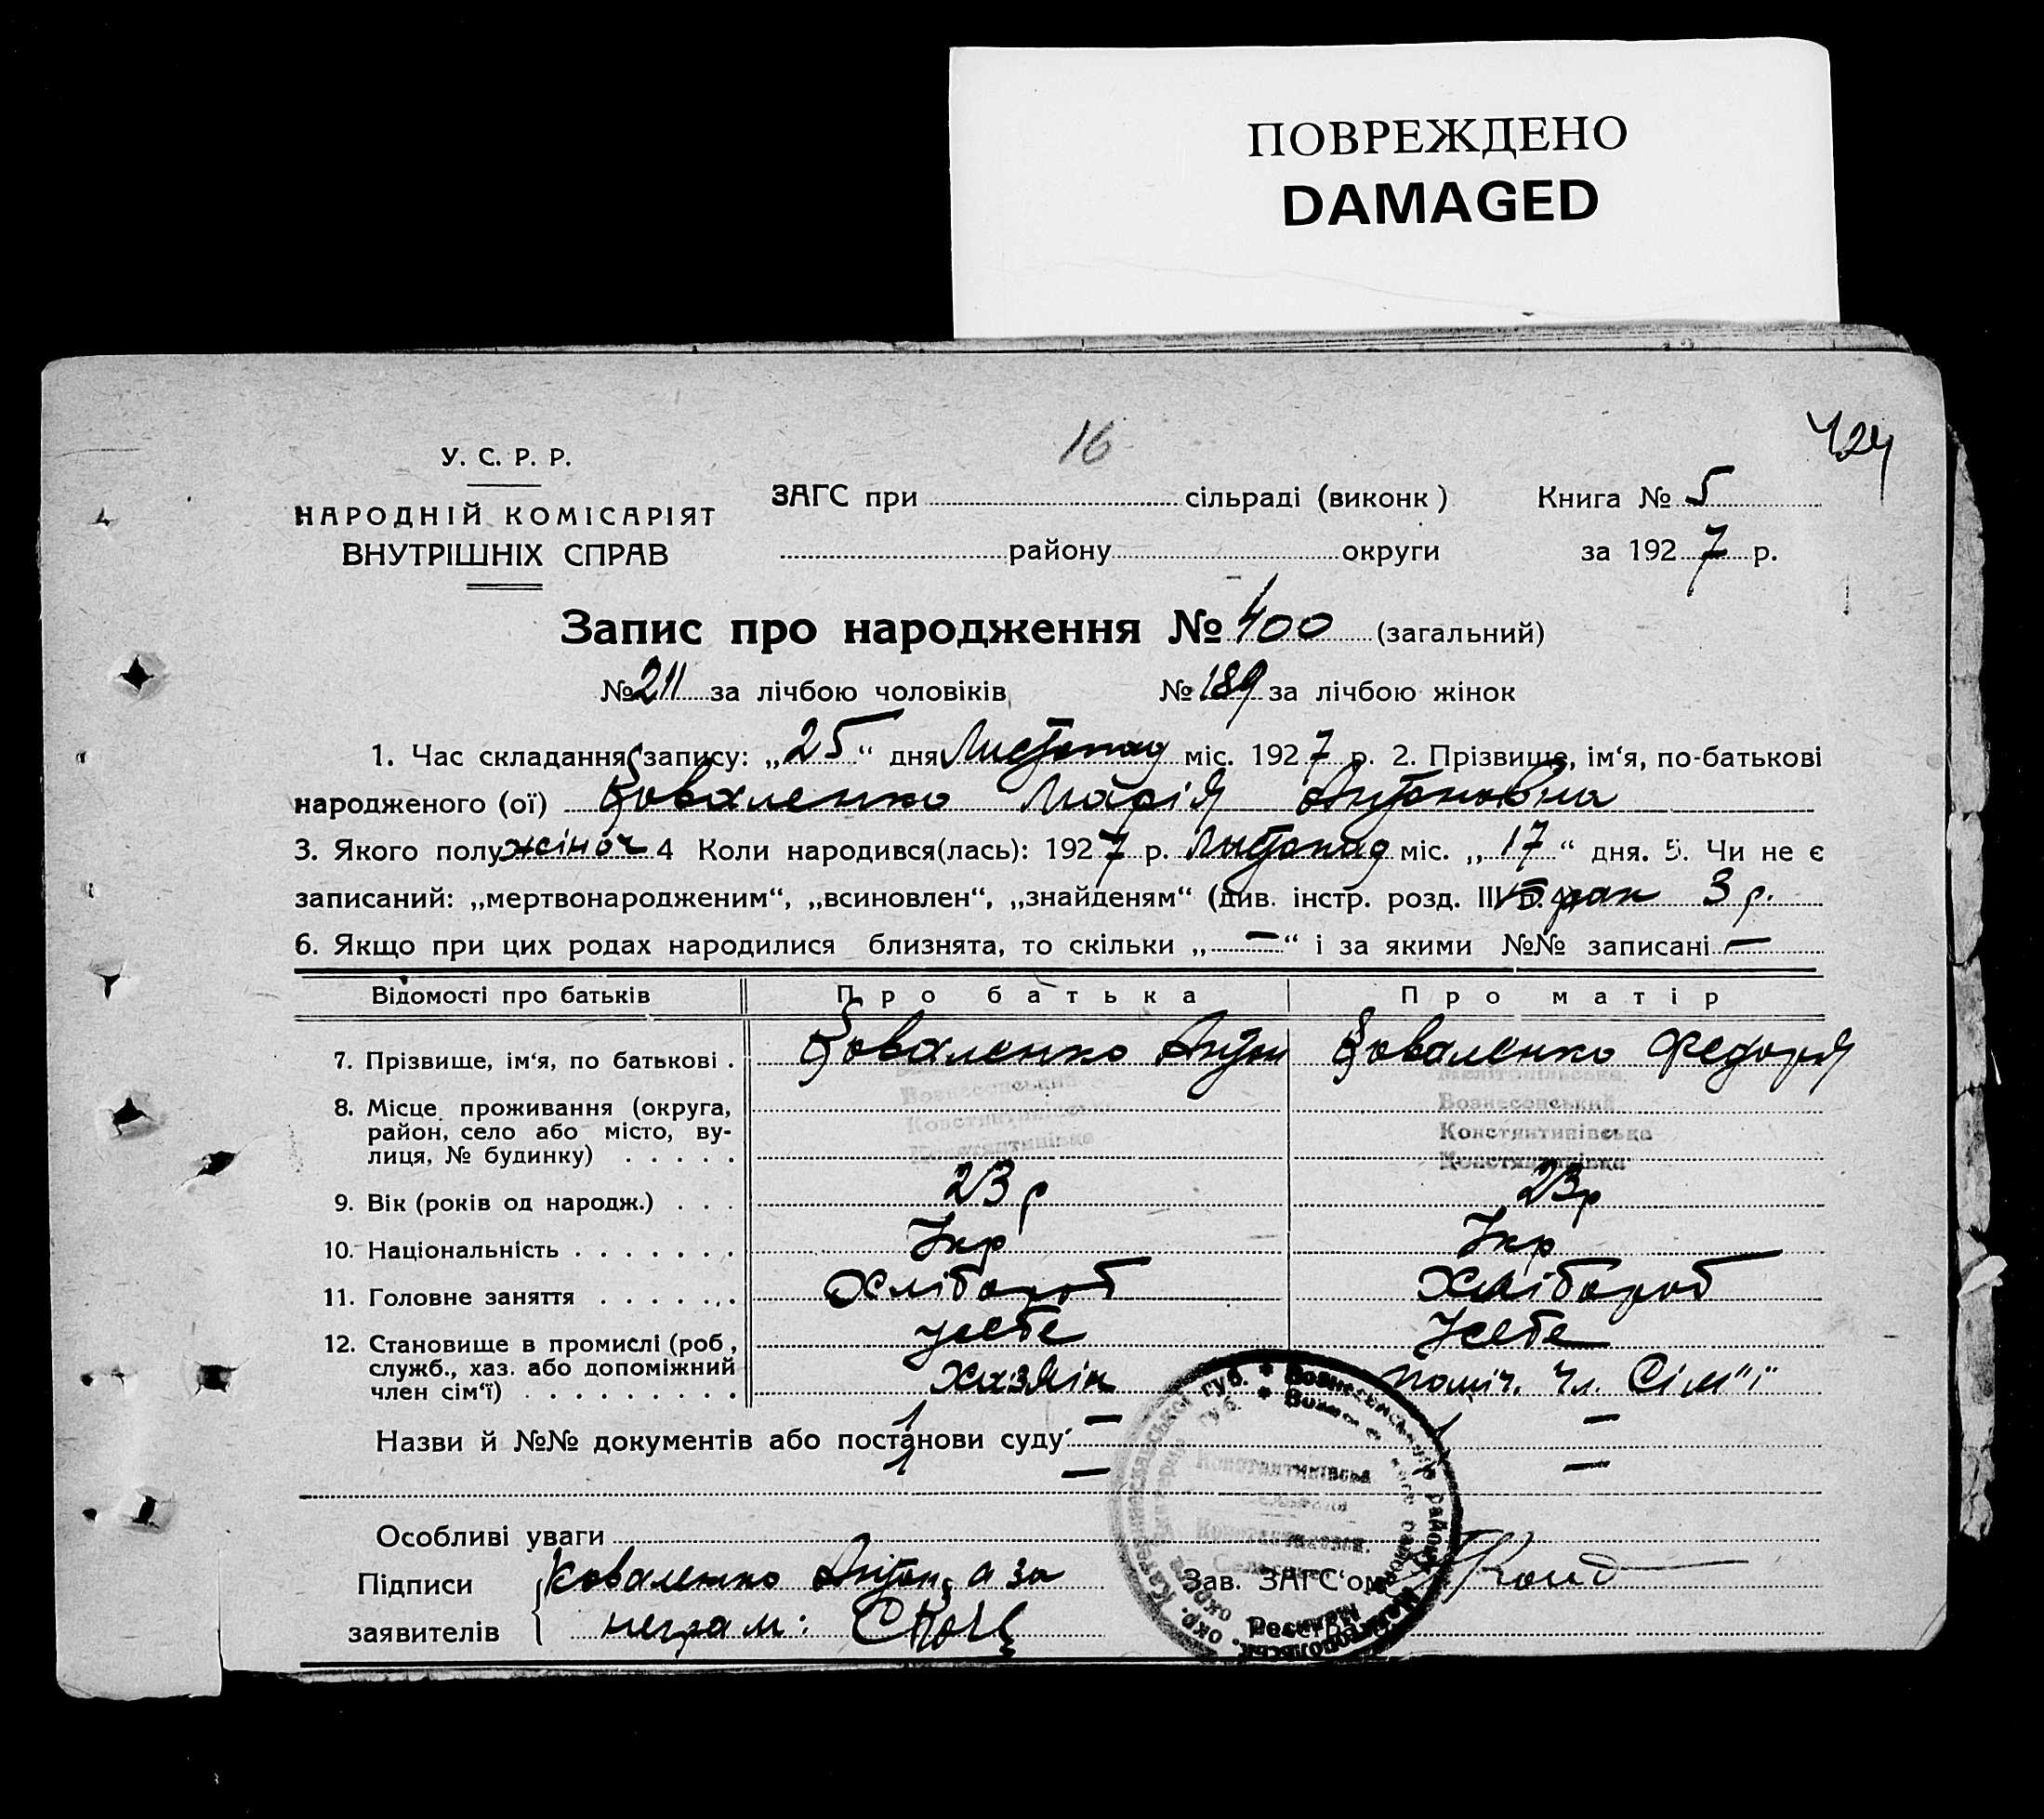 ПОВРЕЖДЕНО
DAMAGED
16
424
У. С. Р. Р.
НАРОДНІЙ КОМІСАРІЯТ
ВНУТРІШНІХ СПРАВ
ЗАГС при сільраді (виконк)
району округи
Книга № 5
за 1927 р.
Запис про народження № 400 (загальний)
№ 211 за лічбою чоловіків № 189 за лічбою жінок
1. Час складання запису: „25“ дня Листопад міс. 1927 р. 2. Прізвище, ім‘я, по-батькові
народженого (ої) Коваленко Марія Антоновна
3. Якого полу жіноч 4 Коли народився(лась): 1927 р. Листопад міс. „17“ дня. 5. Чи не є
записаний: „мертвонародженим“, „всиновлен“, „знайденям“ (див. інстр. розд. III 3 р.
6. Якщо при цих родах народилися близнята, то скільки „—“ і за якими №№ записані —
Відомості про батьків Про батька Про матір
7. Прізвище, ім‘я, по батькові . Коваленко Антон Коваленко Федоря
Мелітопільська
Вознесенський Вознесенський
Констянтинівська Констянтинівська
Констянтинівка Констянтинівка
8. Місце проживання (округа,
район, село або місто, ву-
лиця, № будинку) . . . . .
9. Вік (років од народж.) . . . 23 р 23 р
10. Національність . . . . . . . Укр Укр
11. Головне заняття . . . . . . Хлібороб Хлібороб
12. Становище в промислі (роб, у себе У себе
служб., хаз. або допоміжний
член сім‘ї) . . . . . . . . . хазяїн поміч. чл. Сім"ї
Назви й №№ документів або постанови суду — —
— —
Особливі уваги
Підписи Коваленко Антон, а за
заявителів неграм:
Зав. ЗАГС‘ом
Реєстр